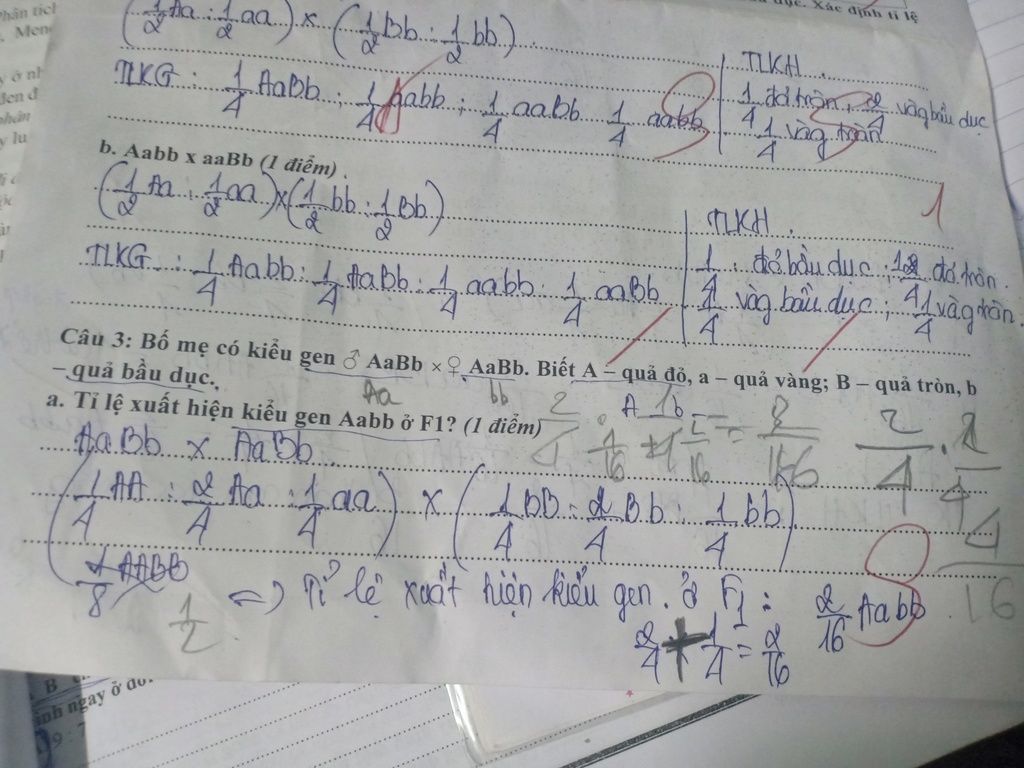 ục. Xác định tỉ lệ
(1/2 Aa : 1/2 aa) x (1/2 Bb : 1/2 bb)
TLKG : 1/4 AaBb ; 1/4 Aabb ; 1/4 aaBb 1/4 aabb
TLKH
1/4 đỏ tròn, 2/4 vàg bầu dục
1/4 vàg tròn
b. Aabb x aaBb (1 điểm)
1
(1/2 Aa : 1/2 aa) x (1/2 bb : 1/2 Bb)
TLKG : 1/4 Aabb : 1/4 AaBb : 1/4 aabb : 1/4 aaBb
TLKH
1/4 đỏ bầu dục ; 1/4 đỏ tròn.
1/4 vàg bầu dục ; 1/4 vàg tròn.
Câu 3: Bố mẹ có kiểu gen ♂ AaBb × ♀ AaBb. Biết A – quả đỏ, a – quả vàng; B – quả tròn, b
– quả bầu dục.
Aa bb
a. Tỉ lệ xuất hiện kiểu gen Aabb ở F1? (1 điểm)
AaBb x AaBb
2/4 . 1/4
4/16
(1/4 AA : 2/4 Aa : 1/4 aa) x (1/4 BB : 2/4 Bb : 1/4 bb)
1/8 AABB
1/2
=> Tỉ lệ xuất hiện kiểu gen ở F1 : 2/16 Aabb
2/4 + 1/4 = 2/16
inh ngay ở đờ
9 : 7